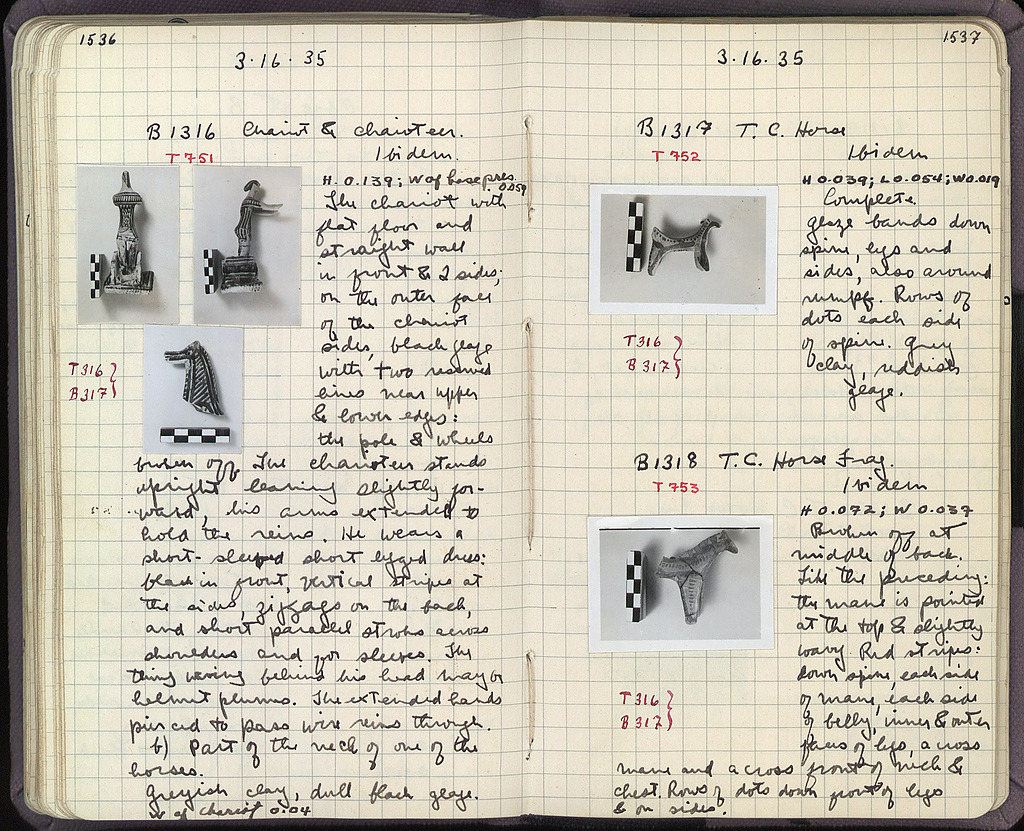 1536
3·16·35
B 1316 Chariot & charioteer.
T 751
Ibidem.
H. 0.139; W of base pres.
0.059
The chariot with
flat floor and
straight wall
in front & 2 sides;
on the outer face
of the chariot
sides, black glaze
T 316
B 317
with two reserved
lines near upper
& lower edges:
the pole & wheels
broken off. The charioteer stands
upright leaning slightly for-
ward, his arms extended to
hold the reins. He wears a
short-sleeved short legged dress:
black in front, vertical stripes at
the sides, zigzags on the back,
and short parallel strokes across
shoulders and for sleeves. The
thing waving behind his head may be
helmet plumes. The extended hands
pierced to pass wire reins through.
b) Part of the neck of one of the
horses.
Greyish clay, dull black glaze.
W of chariot 0.04
1537
3·16·35
B 1317 T. C. Horse
T 752
Ibidem
H 0.039; L 0.054; W 0.019
Complete.
glaze bands down
spine, legs and
sides, also around
rump. Rows of
dots each side
of spine. Grey
clay, reddish
glaze.
T 316
B 317
B 1318 T. C. Horse Frag.
T 753
Ibidem
H 0.072; W 0.037
Broken off at
middle of back.
Like the preceding:
the mane is pointed
at the top & slightly
wavy. Red stripes:
down spine, each side
of mane, each side
of belly, inner & outer
faces of legs, across
T 316
B 317
mane and across front of neck &
chest. Rows of dots down front of legs
& on sides.